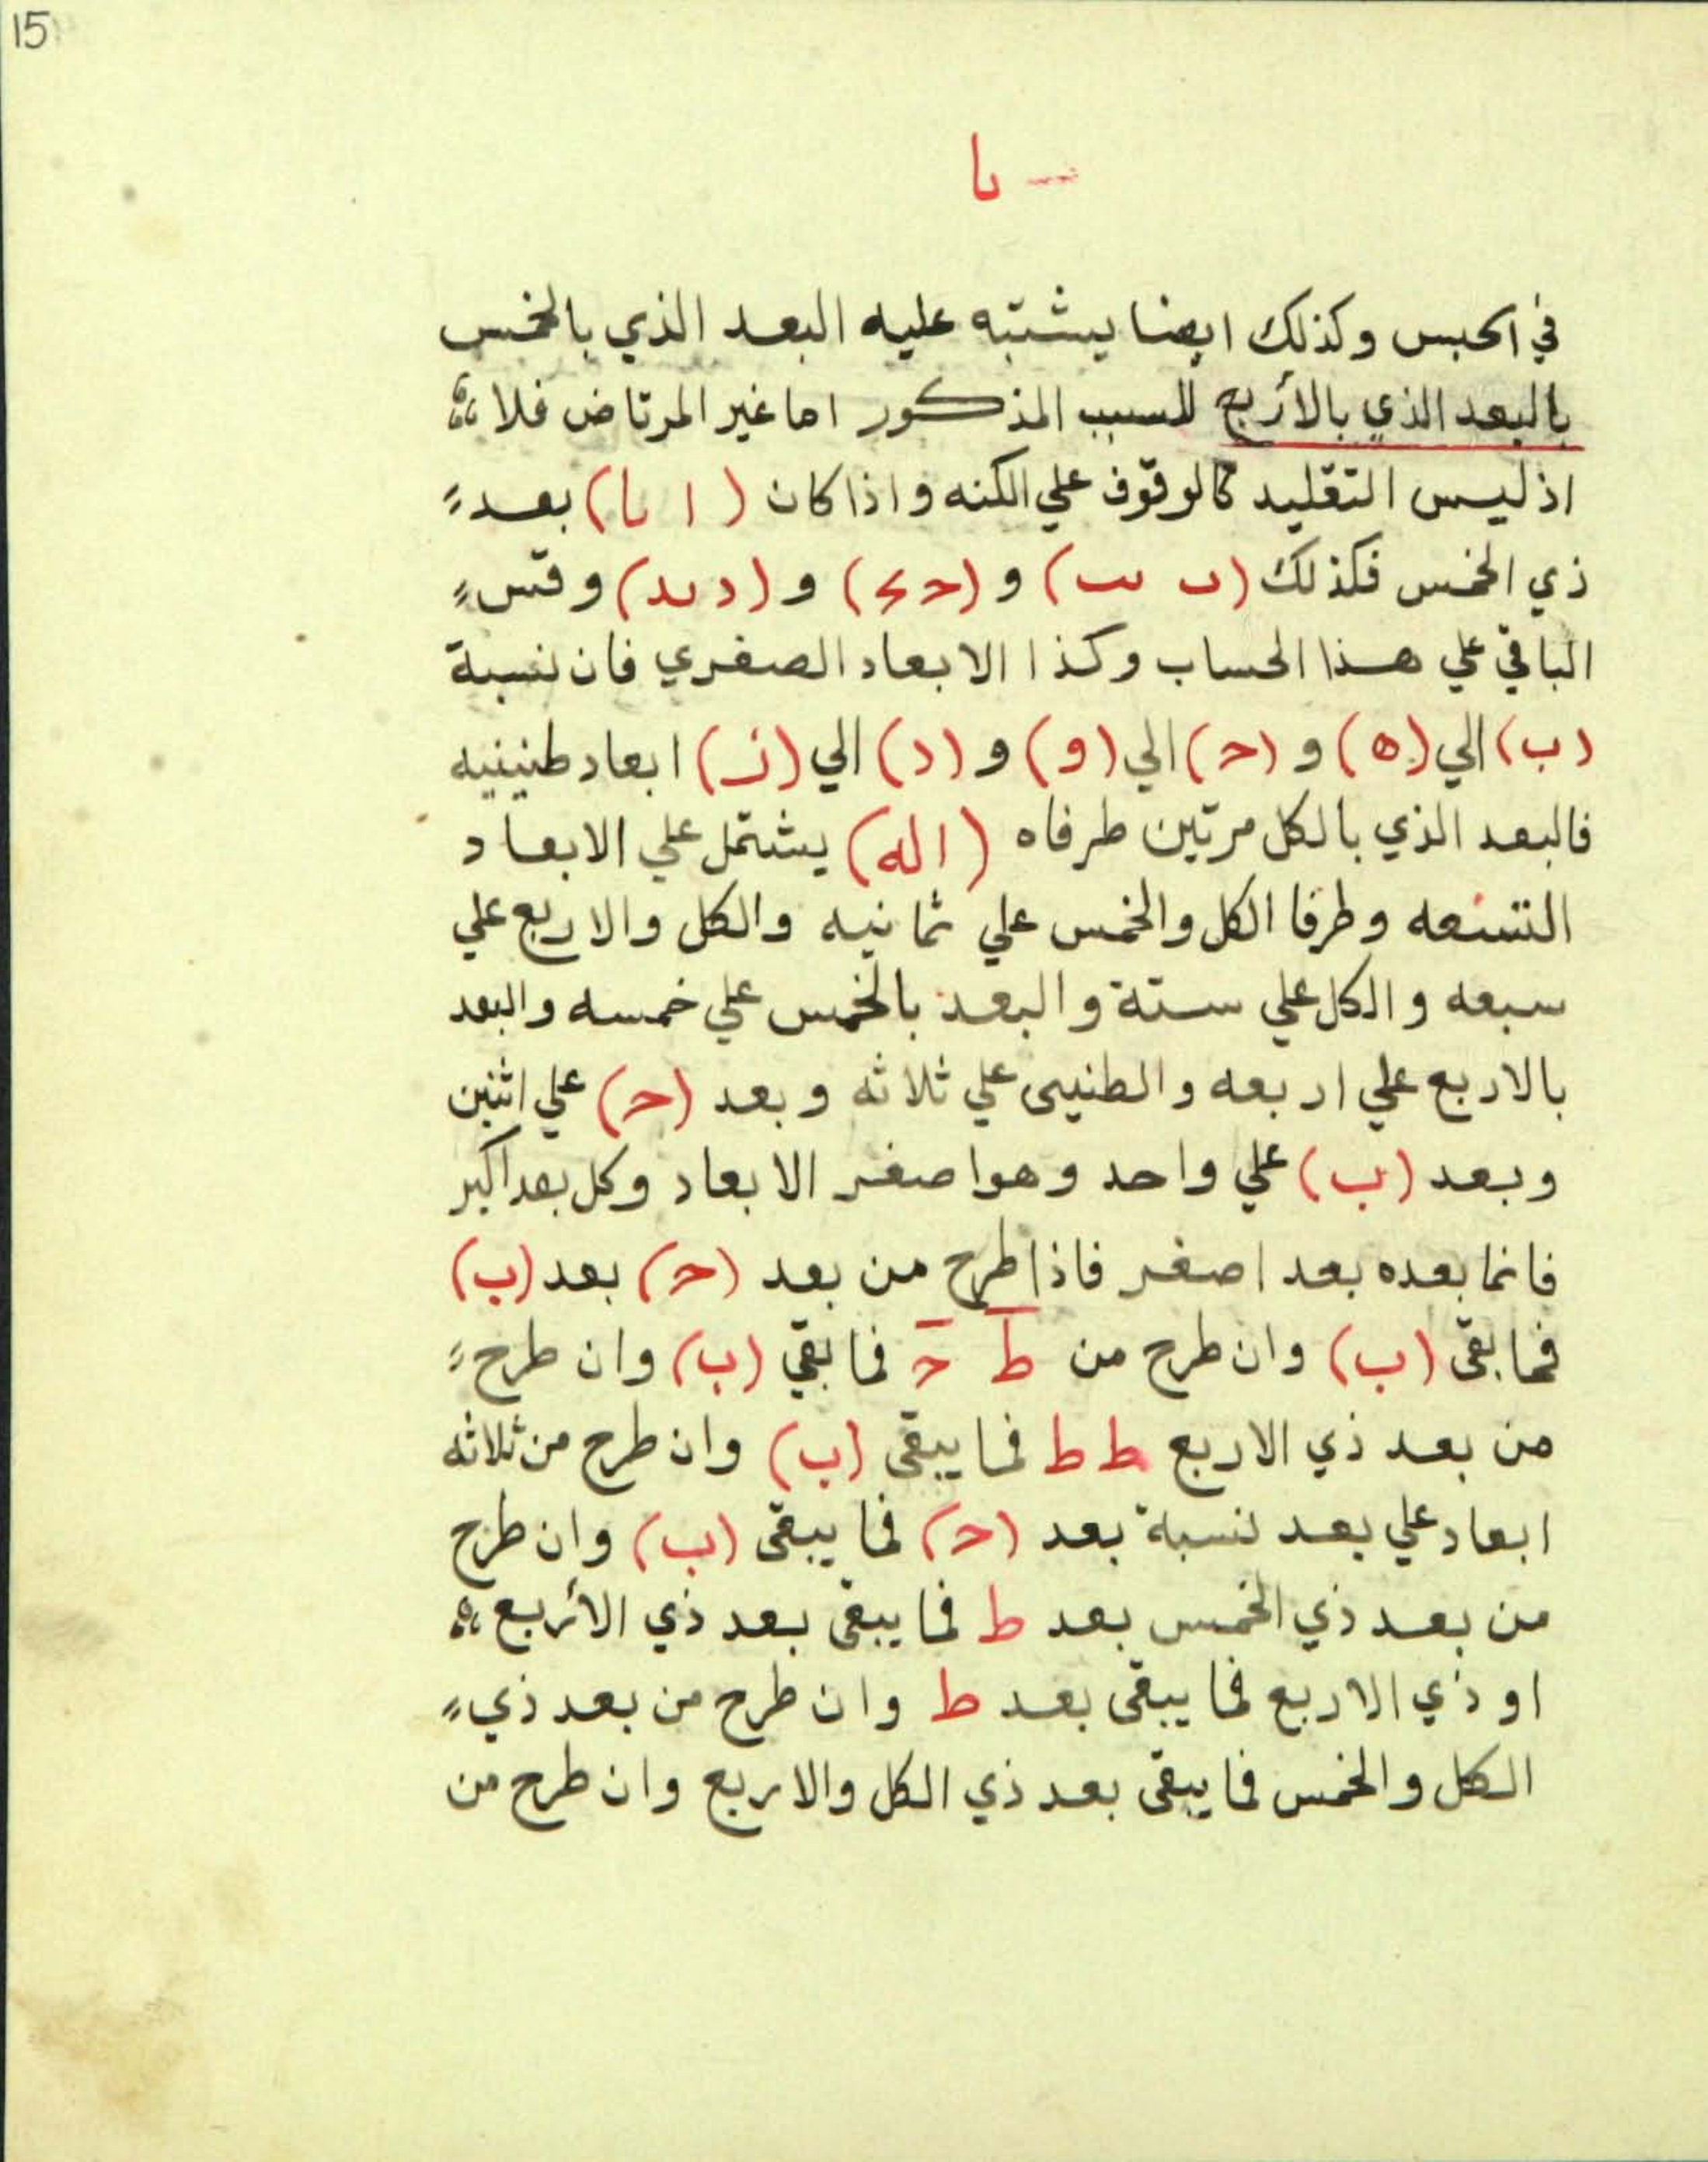 15
يا
في الحبس وكذلك ايضا يشتبه عليه البعد الذي بالخمس
بالبعد الذي بالأربع للسبب المذكور اما غير المرتاض فلا
اذ ليس التقليد كالوقوف علي الكنه واذا كان ( ا يا ) بعد
ذي الخمس فكذلك (ب يب) و (ح يح) و (د يد) وقس
الباقي علي هذا الحساب وكذا الابعاد الصغري فان نسبة
(ب) الي (ه) و (ح) الي (و) و (د) الي (ز) ابعاد طنينيه
فالبعد الذي بالكل مرتين طرفاه (اله) يشتمل علي الابعاد
التسعه وطرفا الكل والخمس علي ثمانيه والكل والاربع علي
سبعه والكل علي ستة والبعد بالخمس علي خمسه والبعد
بالاربع علي اربعه والطنيى علي ثلاثه وبعد (ح) علي اثنين
وبعد (ب) علي واحد وهو اصغر الابعاد وكل بعد اكبر
فانما بعده بعد اصغر فاذا طرح من بعد (ح) بعد (ب)
فما بقى (ب) وان طرح من ط ح فما بقي (ب) وان طرح
من بعد ذي الاربع ط ط فما يبقى (ب) وان طرح من ثلاثه
ابعاد علي بعد نسبة بعد (ح) فما يبقى (ب) وان طرح
من بعد ذي الخمس بعد ط فما يبقى بعد ذي الأربع
او ذي الاربع فما يبقى بعد ط وان طرح من بعد ذي
الكل والخمس فما يبقى بعد ذي الكل والاربع وان طرح من